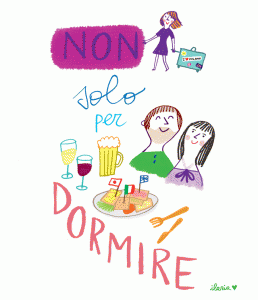 NON
solo
per
DORMIRE
ilaria